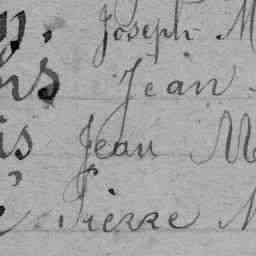 Joseph M
Jean
is Jean M
Pierre M